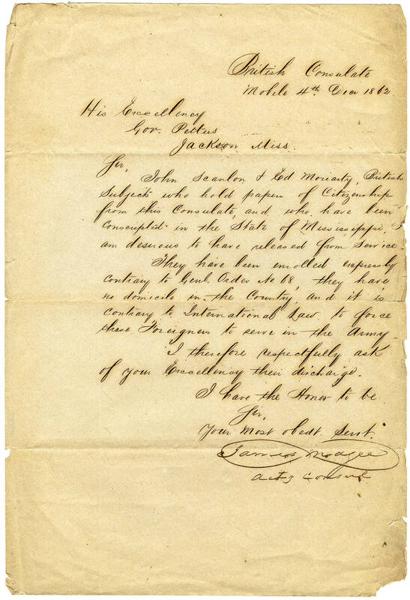 British Consulate
Mobile 4th Decr 1862
His Excellency
Gov. Pettus
Jackson Miss.
Sir,
John Scanlon & Ed Moriarty, British
Subjects who hold papers of Citizenship
from this Consulate, and who have been
Conscripted in the State of Mississippi, I
am desirous to have released from Service.
They have been enrolled expressly
contrary to Genl. Order No 68, they have
no domicile in the Country, and it is
contrary to International Law, to force
these Foreigners to serve in the Army.
I therefore respectfully ask
of your Excellency their discharge.
I have the Honor to be
Sir,
Your Most obedt Servt.
James Magee
Actg Consul